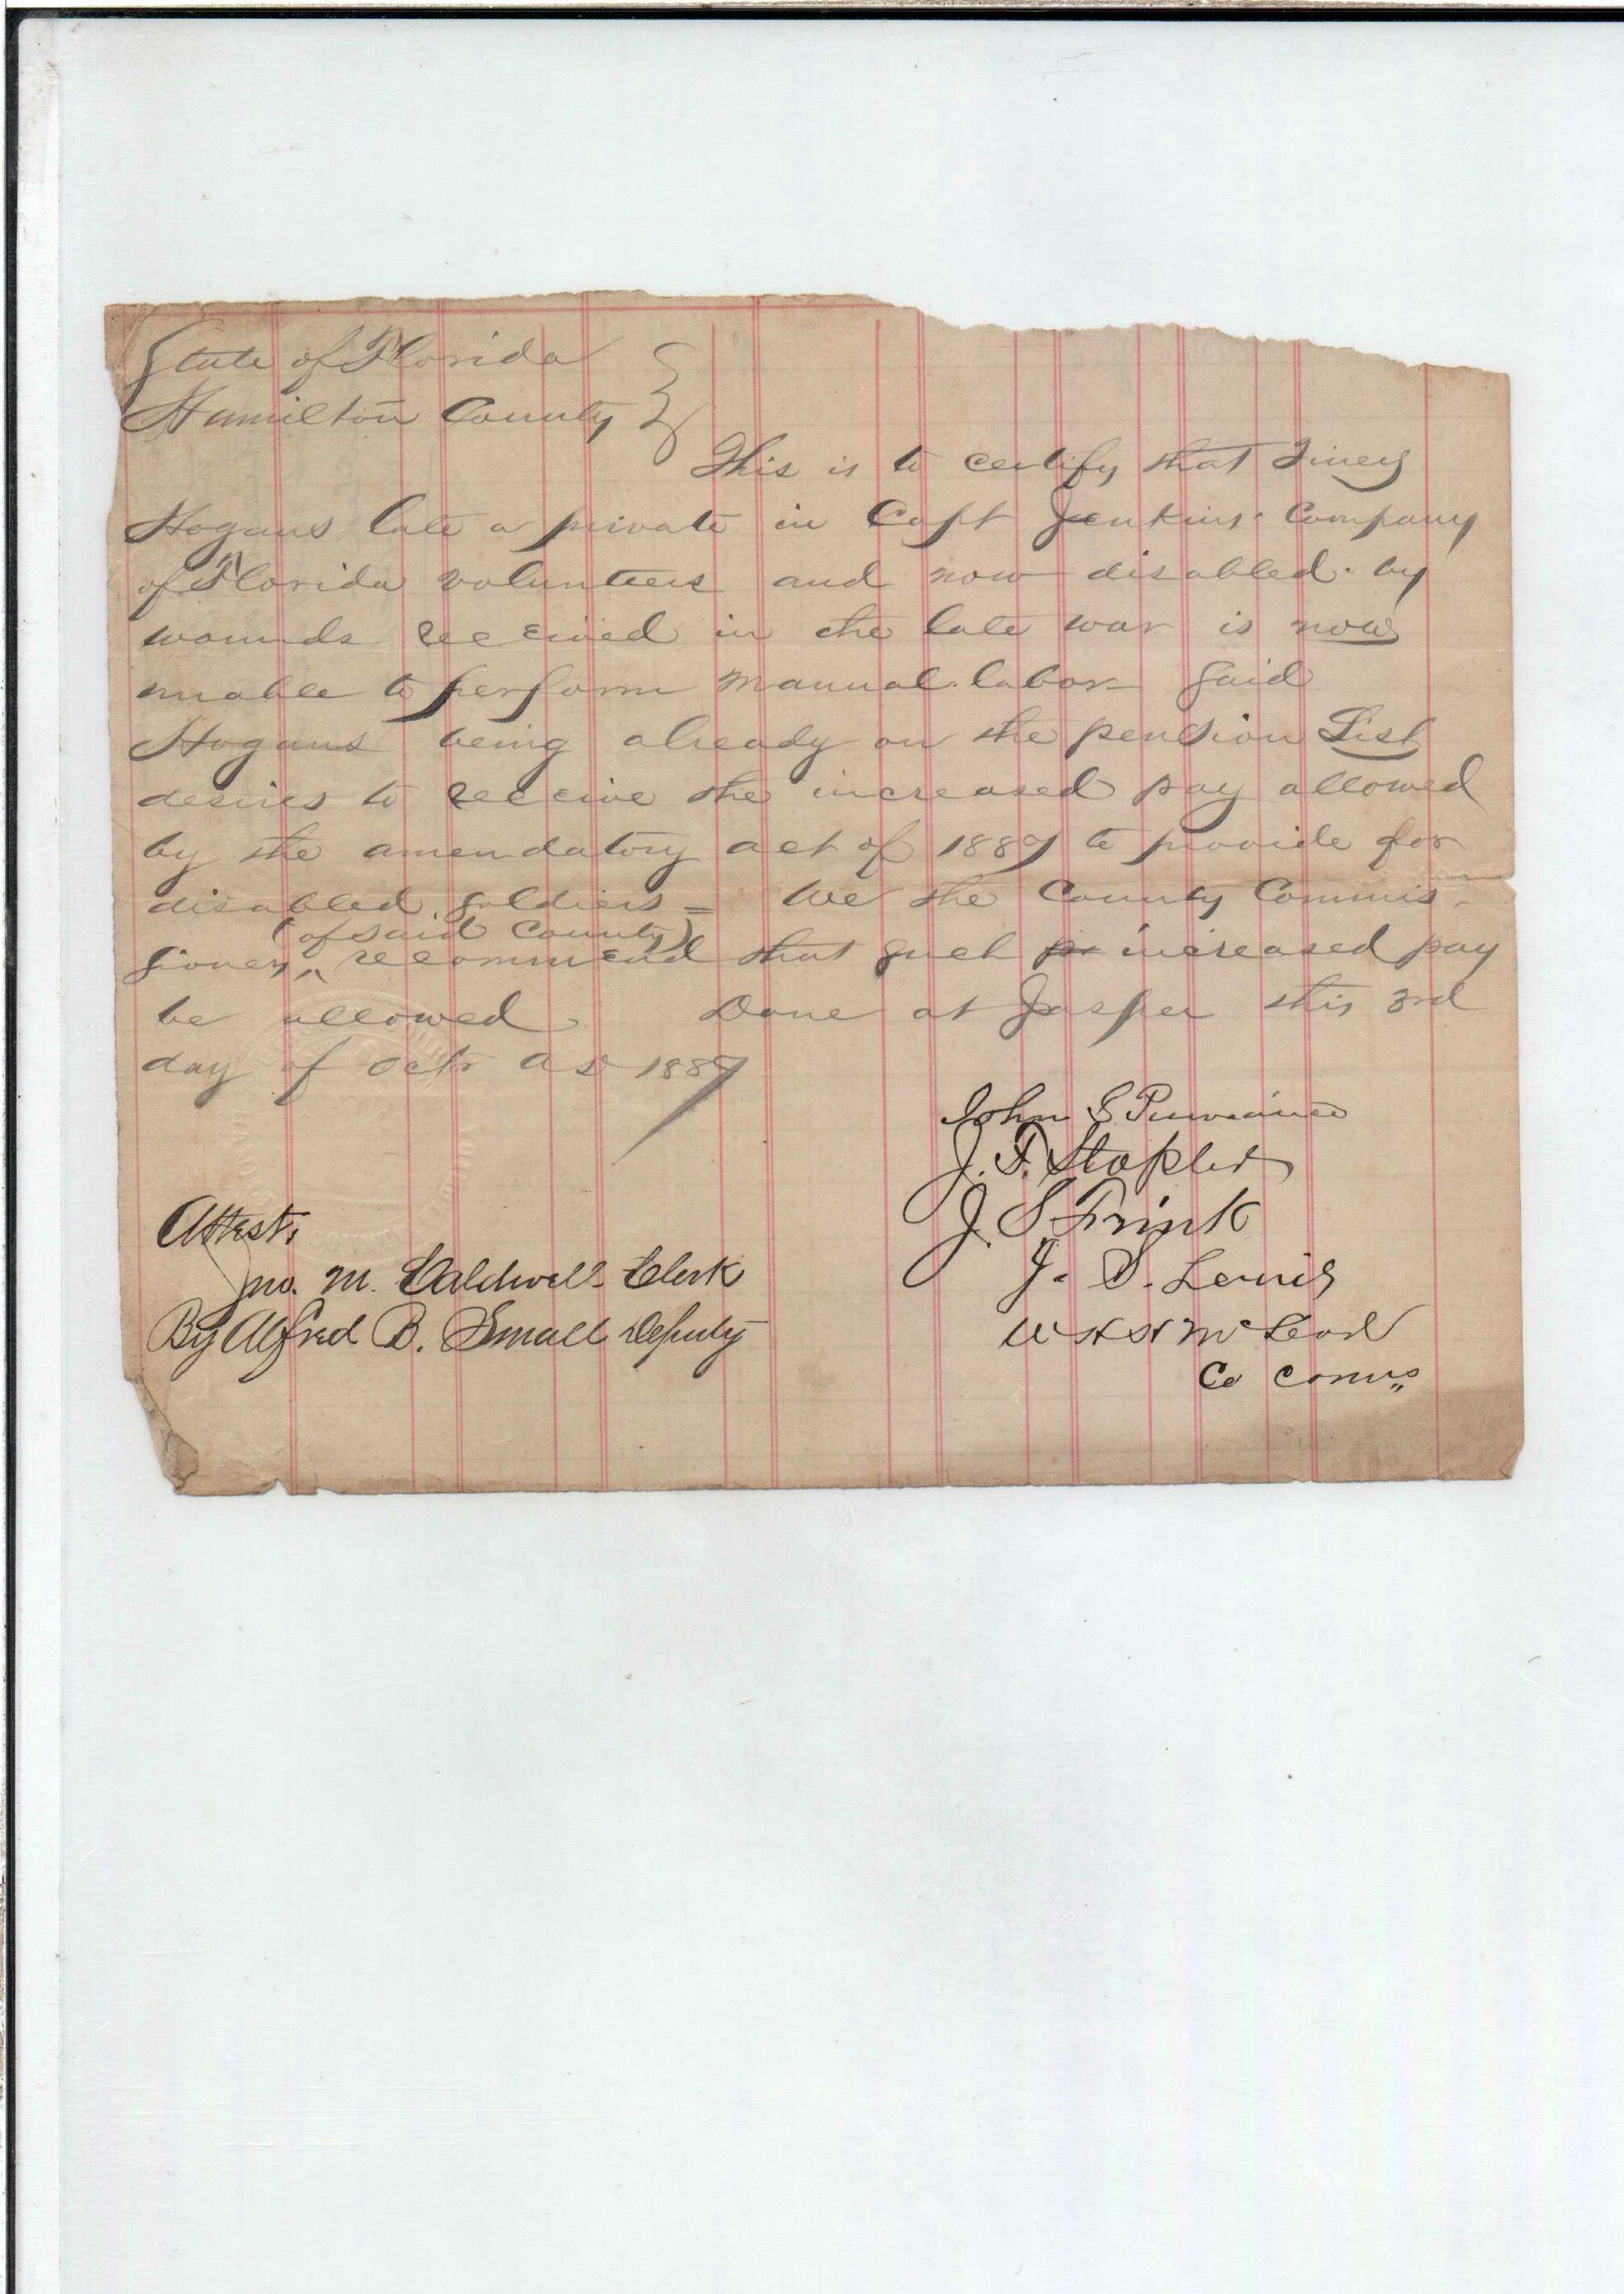 State of Florida
Hamilton County
This is to certify that
Hogans late a private in Capt Jenkins Company
of Florida volunteers and now disabled by
wounds received in the late war is now
unable to perform manual labor Said
Hogans being already on the pension List
desires to receive the increased pay allowed
by the amendatory act of 1889 to provide for
disabled soldiers = We the County Commis-
(of said County)
sioners recommend that such increased pay
be allowed. Done at Jasper this 3rd
day of Octr AD 1889
John S Purviance
J. T. Stapler
J. S Frink
J. S. Lewis
W H H McLeod
Co Comrs
Attest:
Jno. M. Caldwell Clerk
By Alfred B. Small Deputy